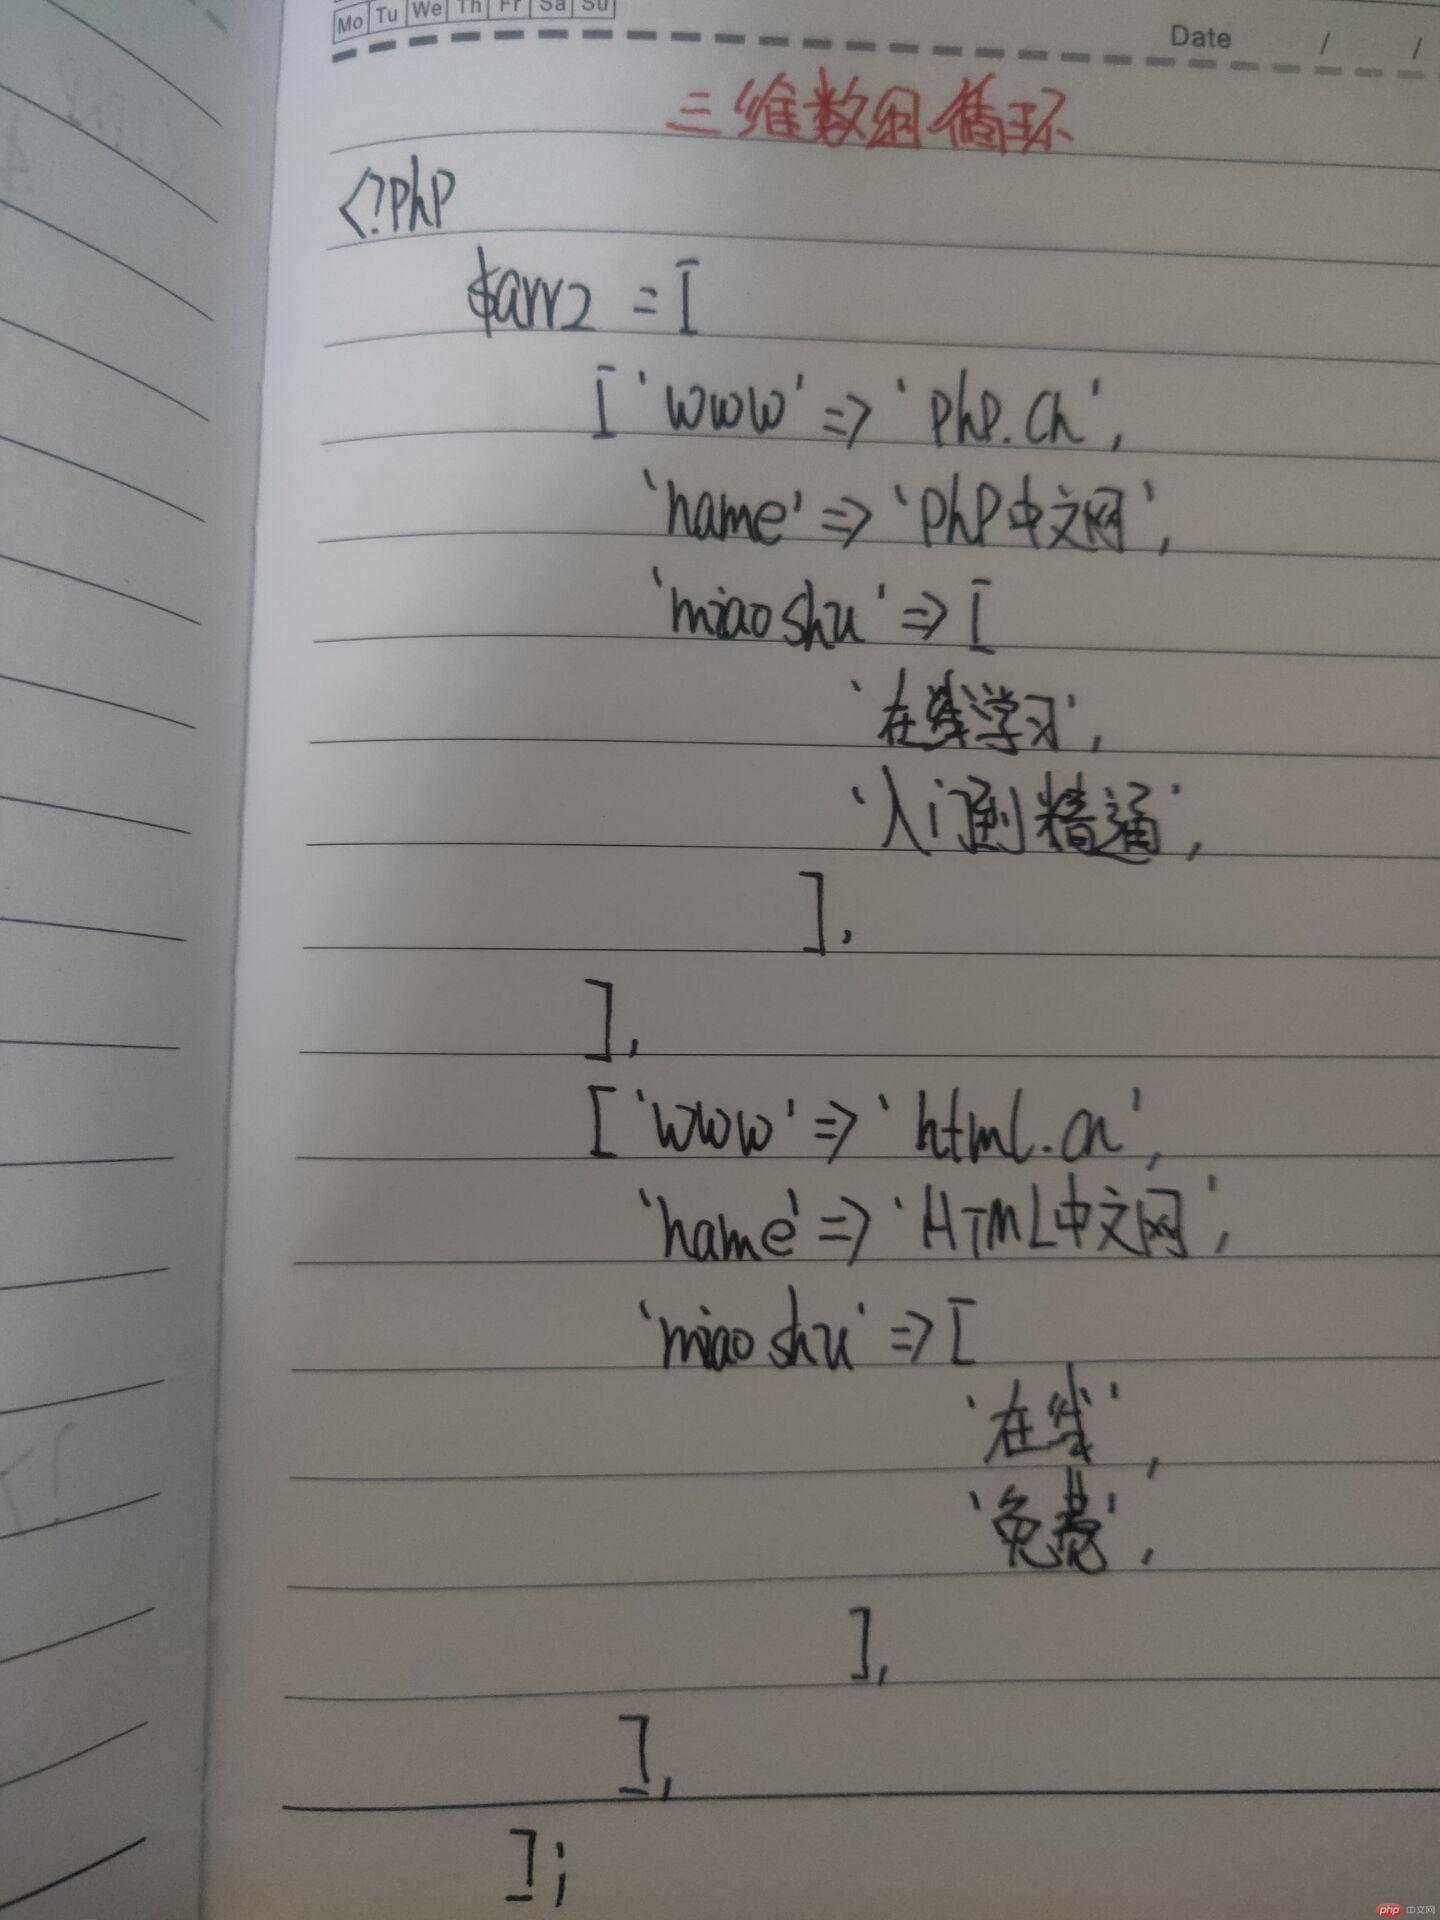 Mo Tu We Th Fr Sa Su
Date / /
三维数组循环
<?php
$arr2 = [
['www' => 'php.cn',
'name' => 'php中文网',
'miaoshu' => [
'在线学习',
'入门到精通',
],
],
['www' => 'html.cn',
'name' => 'HTML中文网',
'miaoshu' => [
'在线',
'免费',
],
],
];
php 中文网